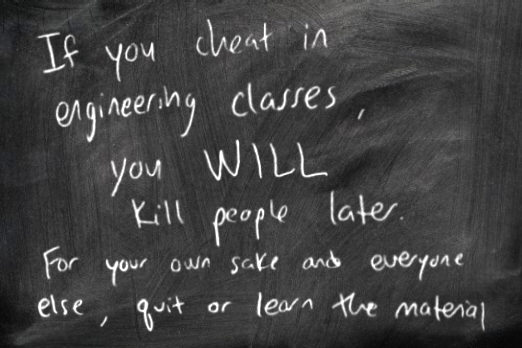 If you cheat in
engineering classes,
you WILL
kill people later.
For your own sake and everyone
else, quit or learn the material